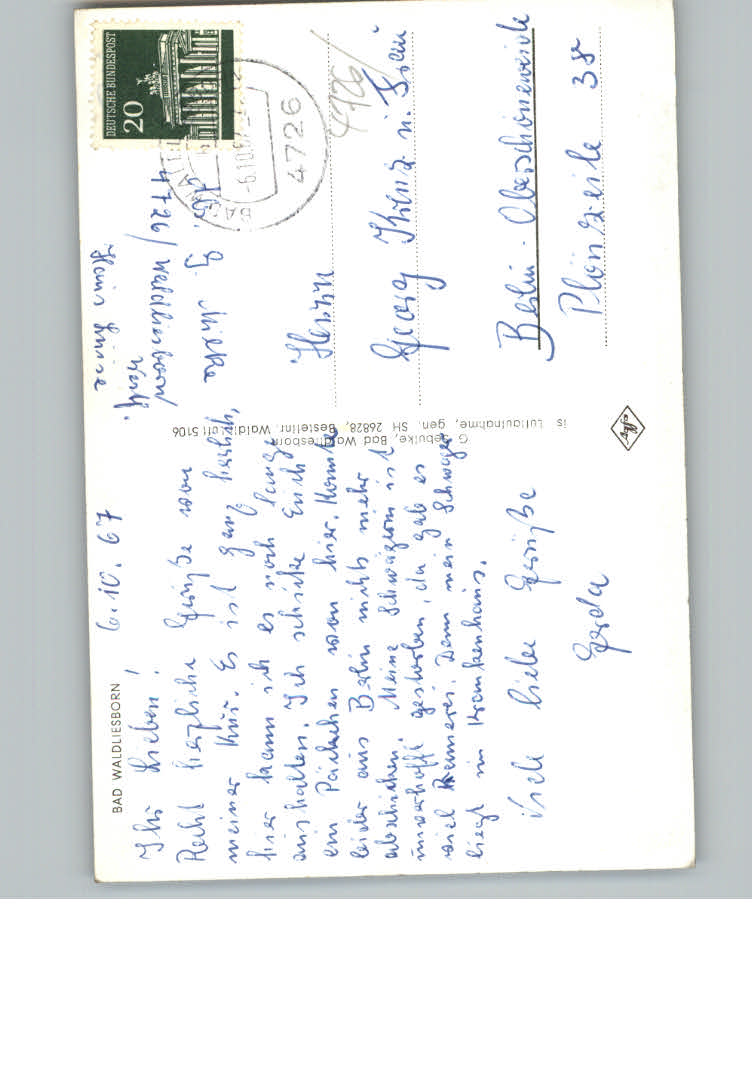 BAD WALDLIESBORN
6.10.67
Ihr Lieben!
Recht herzliche Grüße von
meiner Kur. Es ist ganz herrlich,
hier kann ich es noch lange
aushalten. Ich schicke Euch
ein Päckchen von hier. Konnte
leider aus Berlin nichts mehr
abschicken. Meine Schwägerin ist
unverhofft gestorben, da gab es
viel Rennerei. Denn mein Schwager
liegt im Krankenhaus.
Viele liebe Grüße
Gerda
G. Gebulke, Bad Waldliesborn
Luftaufnahme, gen. SH 26828, Bestellnr. Waldl. 5106
Haus
4726/Waldliesborn
DEUTSCHE BUNDESPOST
20
4726
-6.10.67
4726/
Herrn
Georg Kunz u. Frau
Berlin-Oberschöneweide
Plönzeile 38